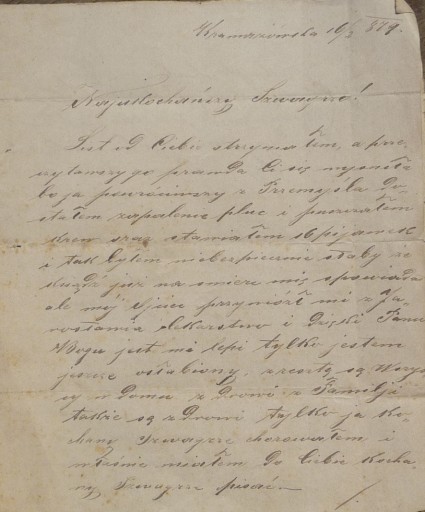 Kramarzówka 16/3 879.
Najukochańszy Szwagrze!
List od Ciebie otrzymałem, a prze
czytawszy go prawda Ci się wyśniła
bo ja powróciwszy z Przemyśla do
stałem zapalenie płuc i puszczałem
krew oraz stawiałem 16 pijawek
i tak byłem niebezpiecznie słaby że
ksiądz już na śmierć mię spowiadał
ale mój ojciec przywiózł mi z Ja
rosławia lekarstwo i Dzięki Panu
Bogu jest mi lepi tylko jestem
jeszcze osłabiony, zresztą są Wszys
cy w Domu zdrowi z Familji
także są zdrowi tylko ja ko
chany Szwagrze chorowałem i
właśnie miałem do Ciebie Kocha
ny Szwagrze pisać.